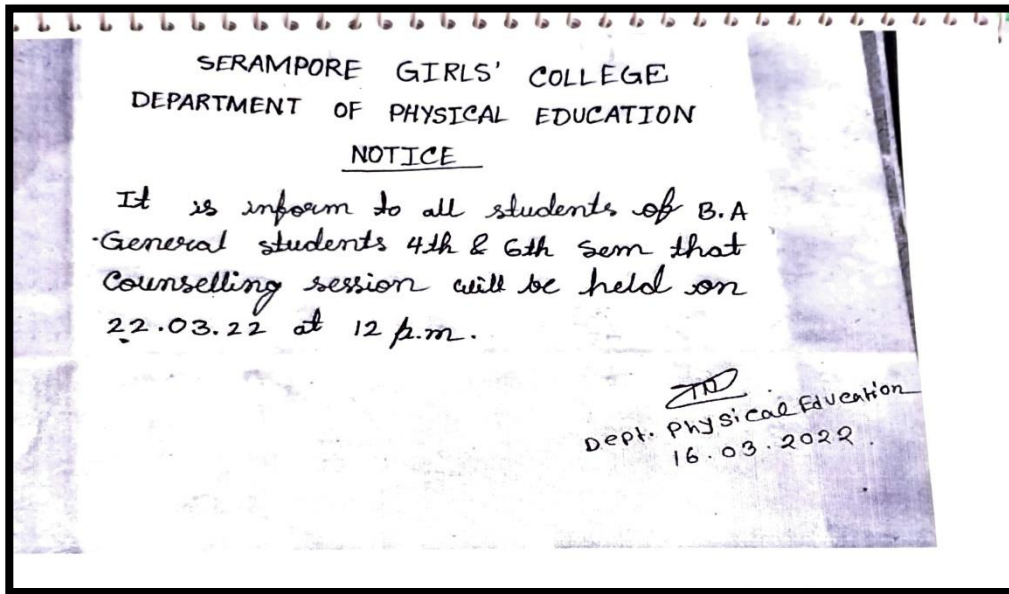 SERAMPORE GIRLS' COLLEGE
DEPARTMENT OF PHYSICAL EDUCATION
NOTICE
It is inform to all students of B.A
General students 4th & 6th sem that
Counselling session will be held on
22.03.22 at 12 p.m.
Dept. Physical Education
16.03.2022.